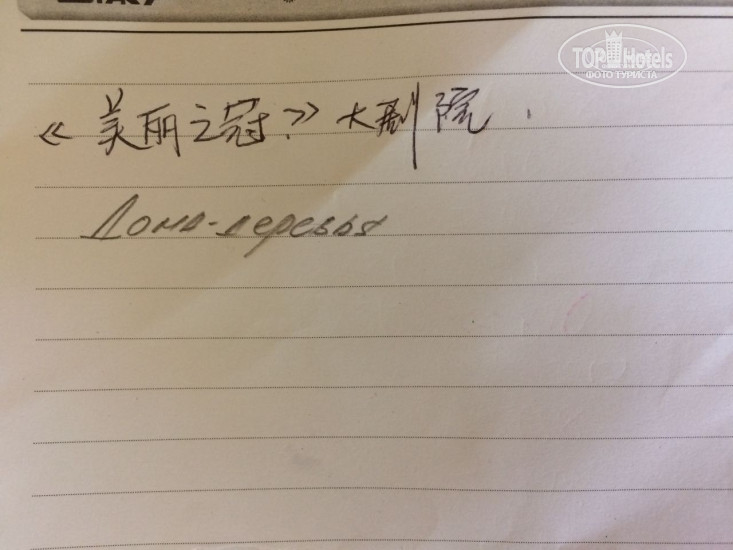 TOP Hotels
ФОТО ТУРИСТА
《美丽之冠?》大剧院.
Дома-деревья